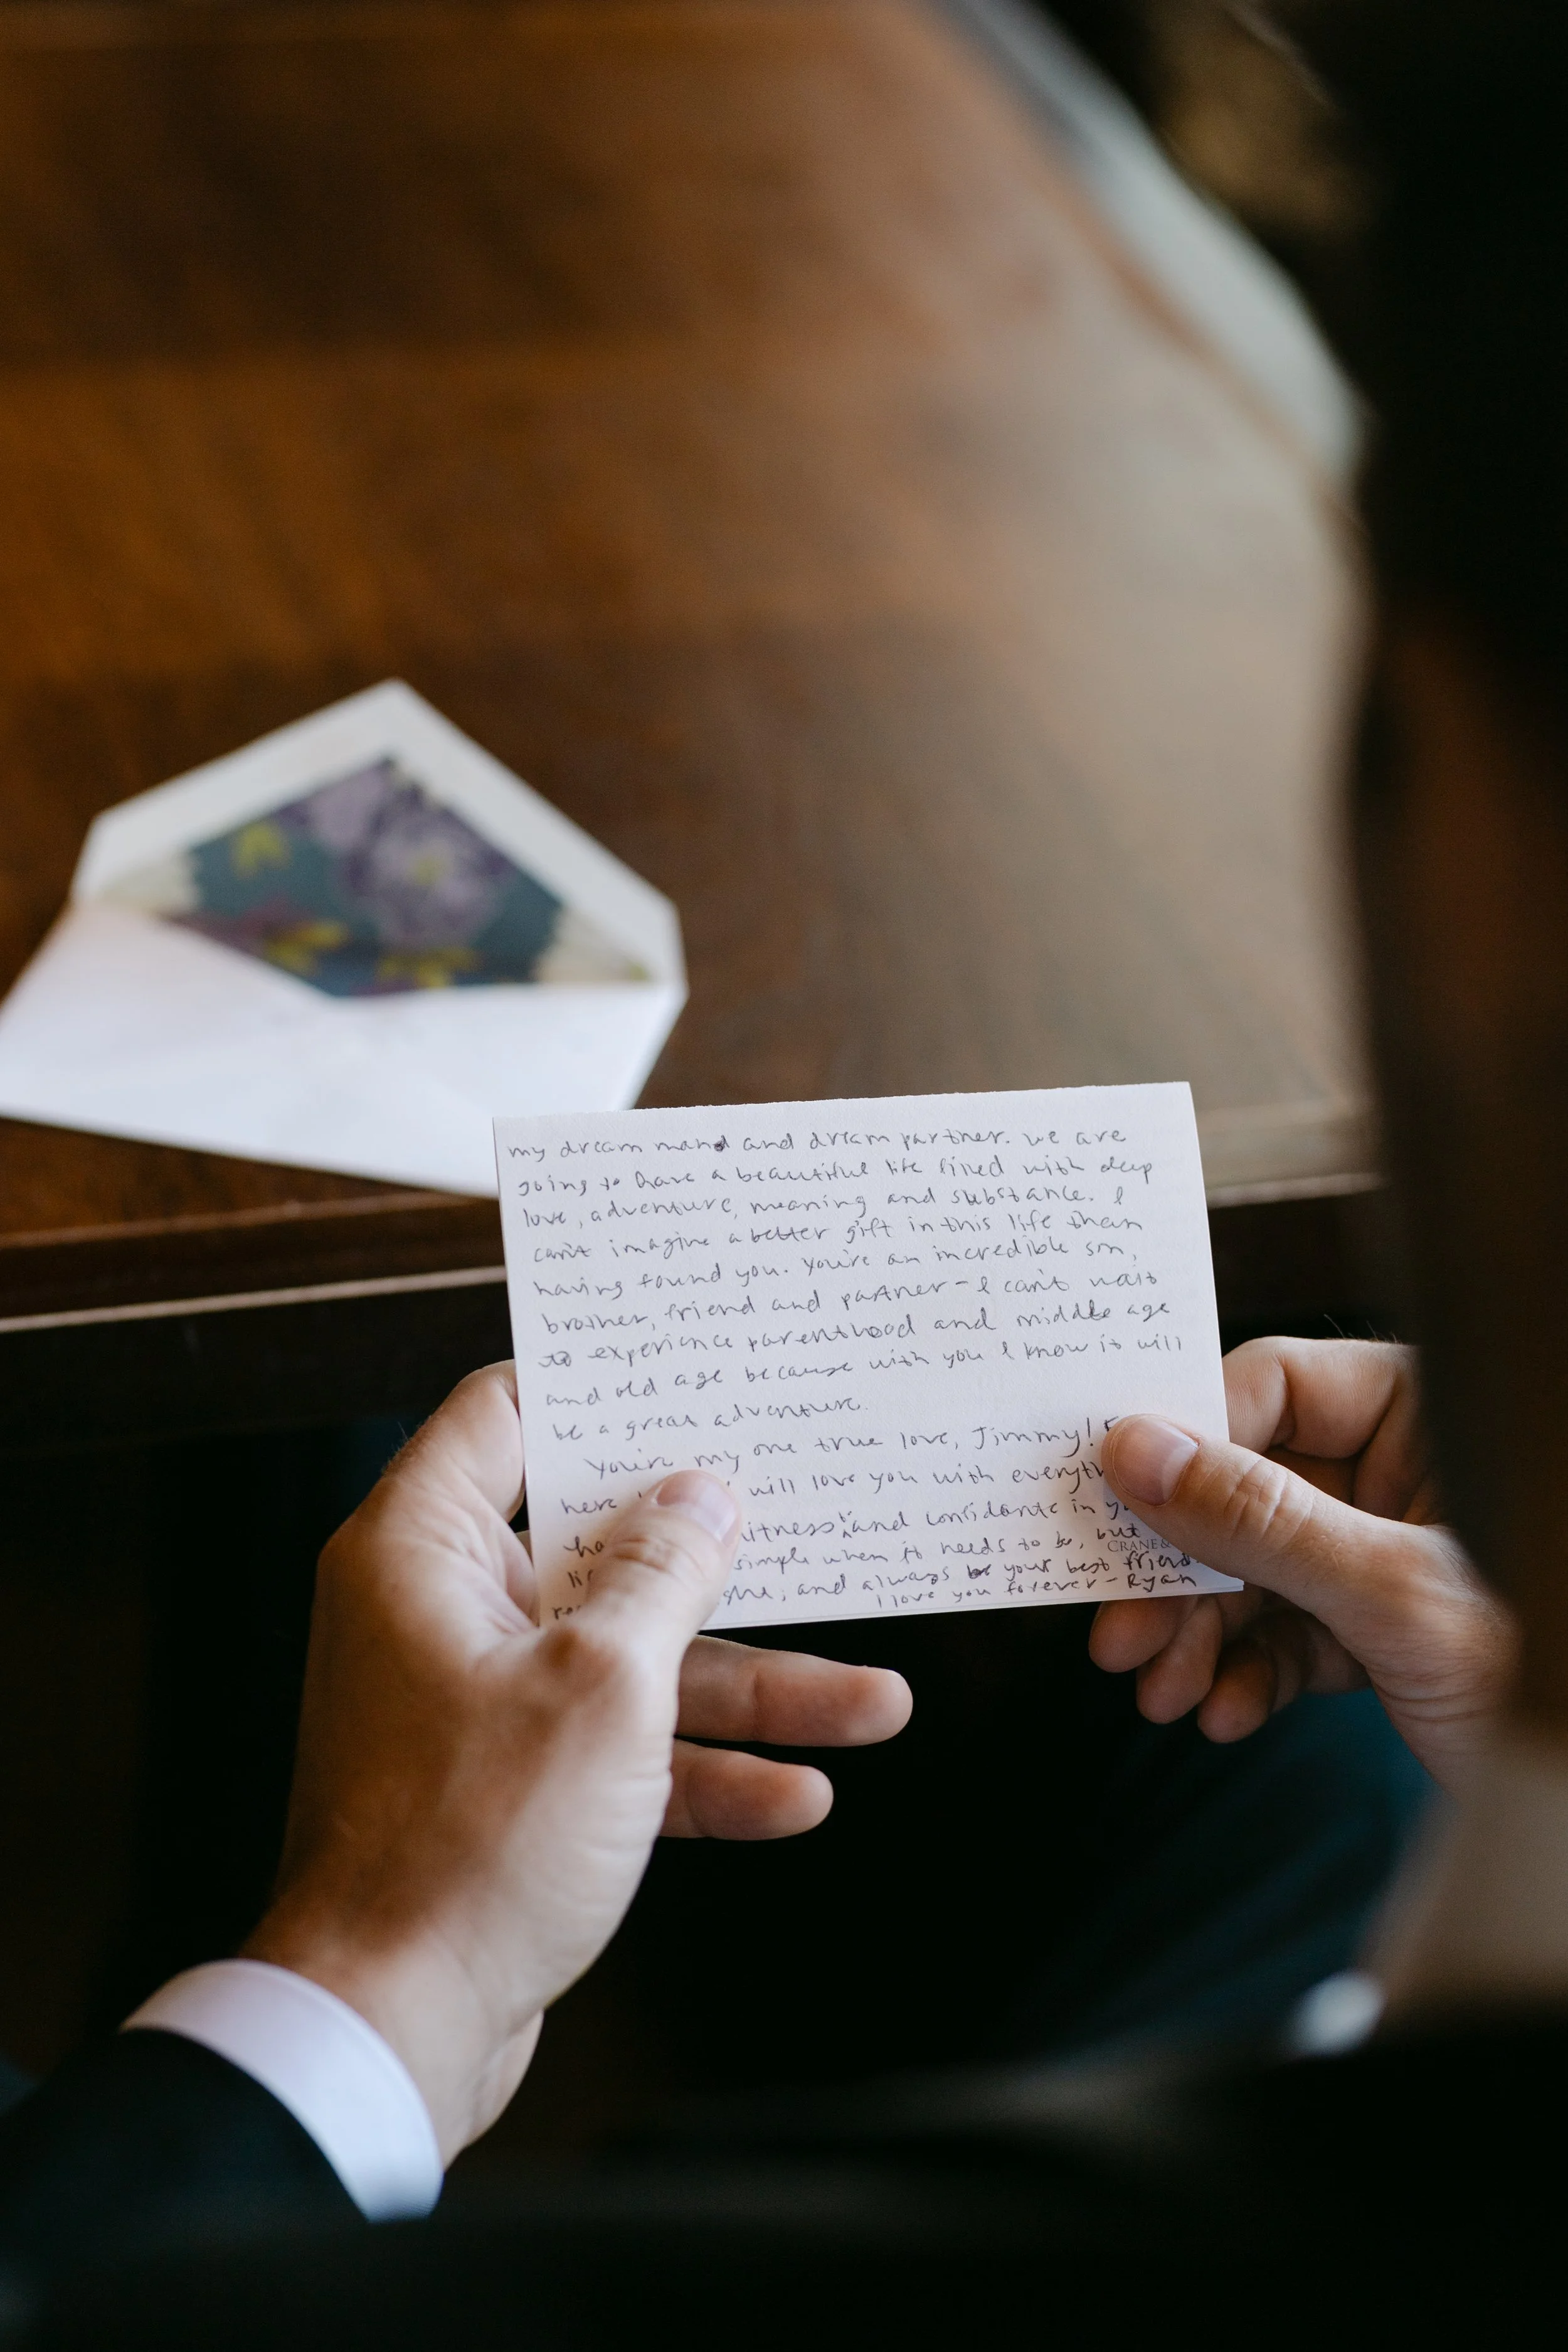 my dream man and dream partner. We are
going to have a beautiful life filled with deep
love, adventure, meaning and substance. I
can't imagine a better gift in this life than
having found you. You're an incredible son,
brother, friend and partner - I can't wait
to experience parenthood and middle age
and old age because with you I know it will
be a great adventure.
You're my one true love, Jimmy!
here will love you with
and confidante in
simple when it needs to be, but
CRANE&
and always be your best friend.
I love you forever - Ryan